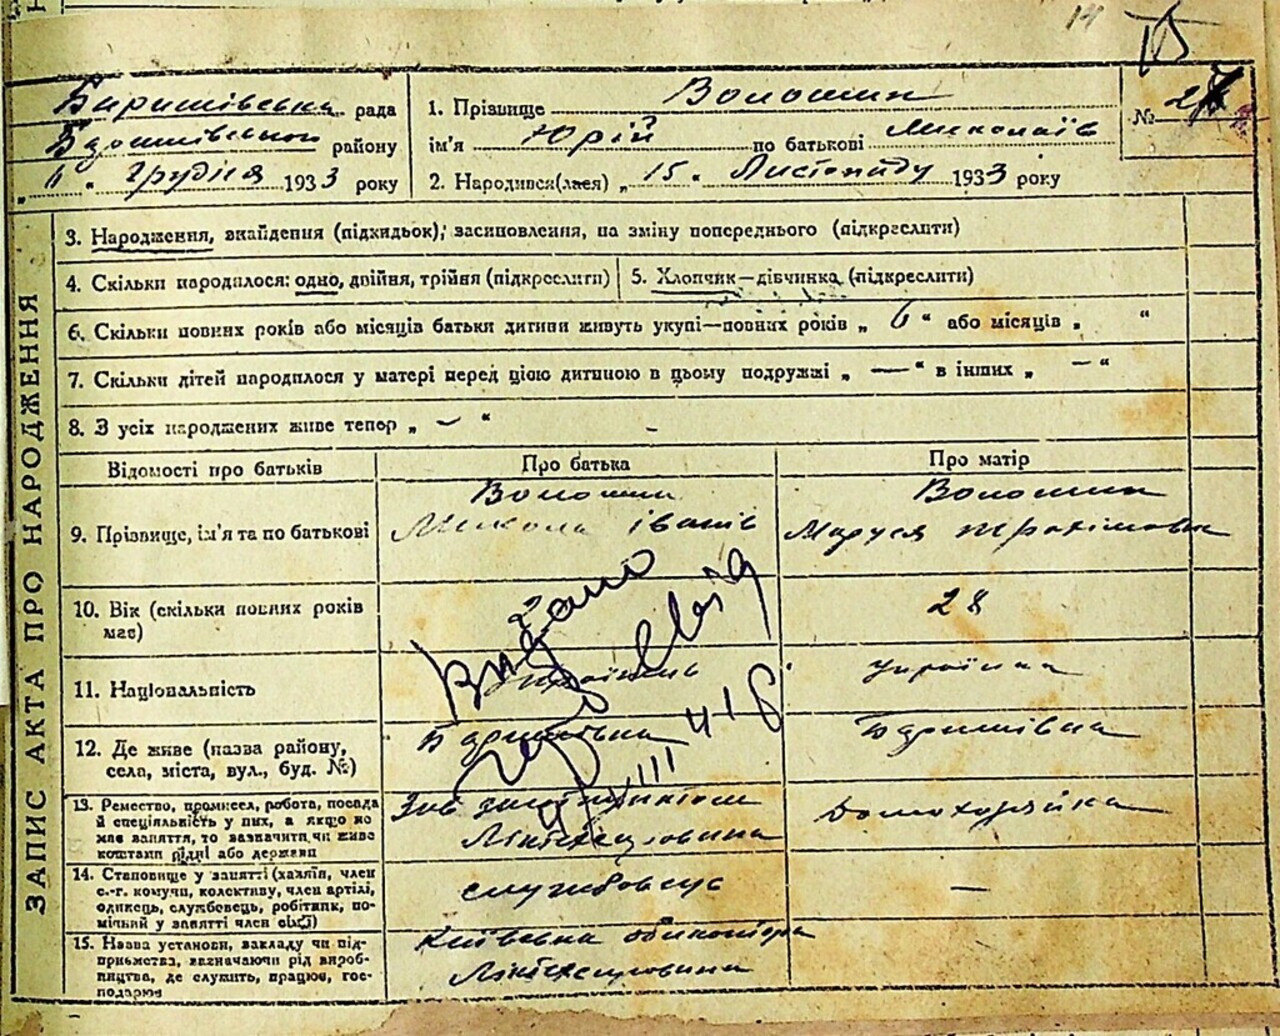 14
Баришівська рада
Баришівського району
„ 11 “ Грудня 1933 року
1. Прізвище Волошин
ім'я Юрій по батькові Миколаїв
2. Народився(лася) „ 15 “ Листопаду 1933 року
№ 2
ЗАПИС АКТА ПРО НАРОДЖЕННЯ
3. Народження, знайдення (підкидьок), засиновлення, на зміну попереднього (підкреслити)
4. Скільки народилося: одно, двійня, трійня (підкреслити)
5. Хлопчик—дівчинка (підкреслити)
6. Скільки повних років або місяців батьки дитини живуть укупі—повних років „ 6 “ або місяців „ “
7. Скільки дітей народилося у матері перед цією дитиною в цьому подружжі „ — “ в інших „ — “
8. З усіх народжених живе тепер „ — “
Відомості про батьків
Про батька
Про матір
9. Прізвище, ім'я та по батькові
Волошин
Микола Іванів
Волошин
Маруся Трохімовна
10. Вік (скільки повних років
має)
28
11. Національність
Українець
Українка
12. Де живе (назва району,
села, міста, вул., буд. №)
Баришівка
Баришівка
13. Ремество, промисел, робота, посада
й спеціяльність у них, а якщо не
має заняття, то зазначити чи живе
коштами рідні або держави
Зав
Домохозяйка
14. Становище у занятті (хазяїн, член
с.-г. комуни, колективу, член артілі,
одинець, службовець, робітник, по-
мічний у занятті член сім'ї)
службовець
—
15. Назва установи, закладу чи під-
приємства, зазначаючи рід вироб-
ництва, де служить, працює, гос-
подарює
Київська обл
Видано